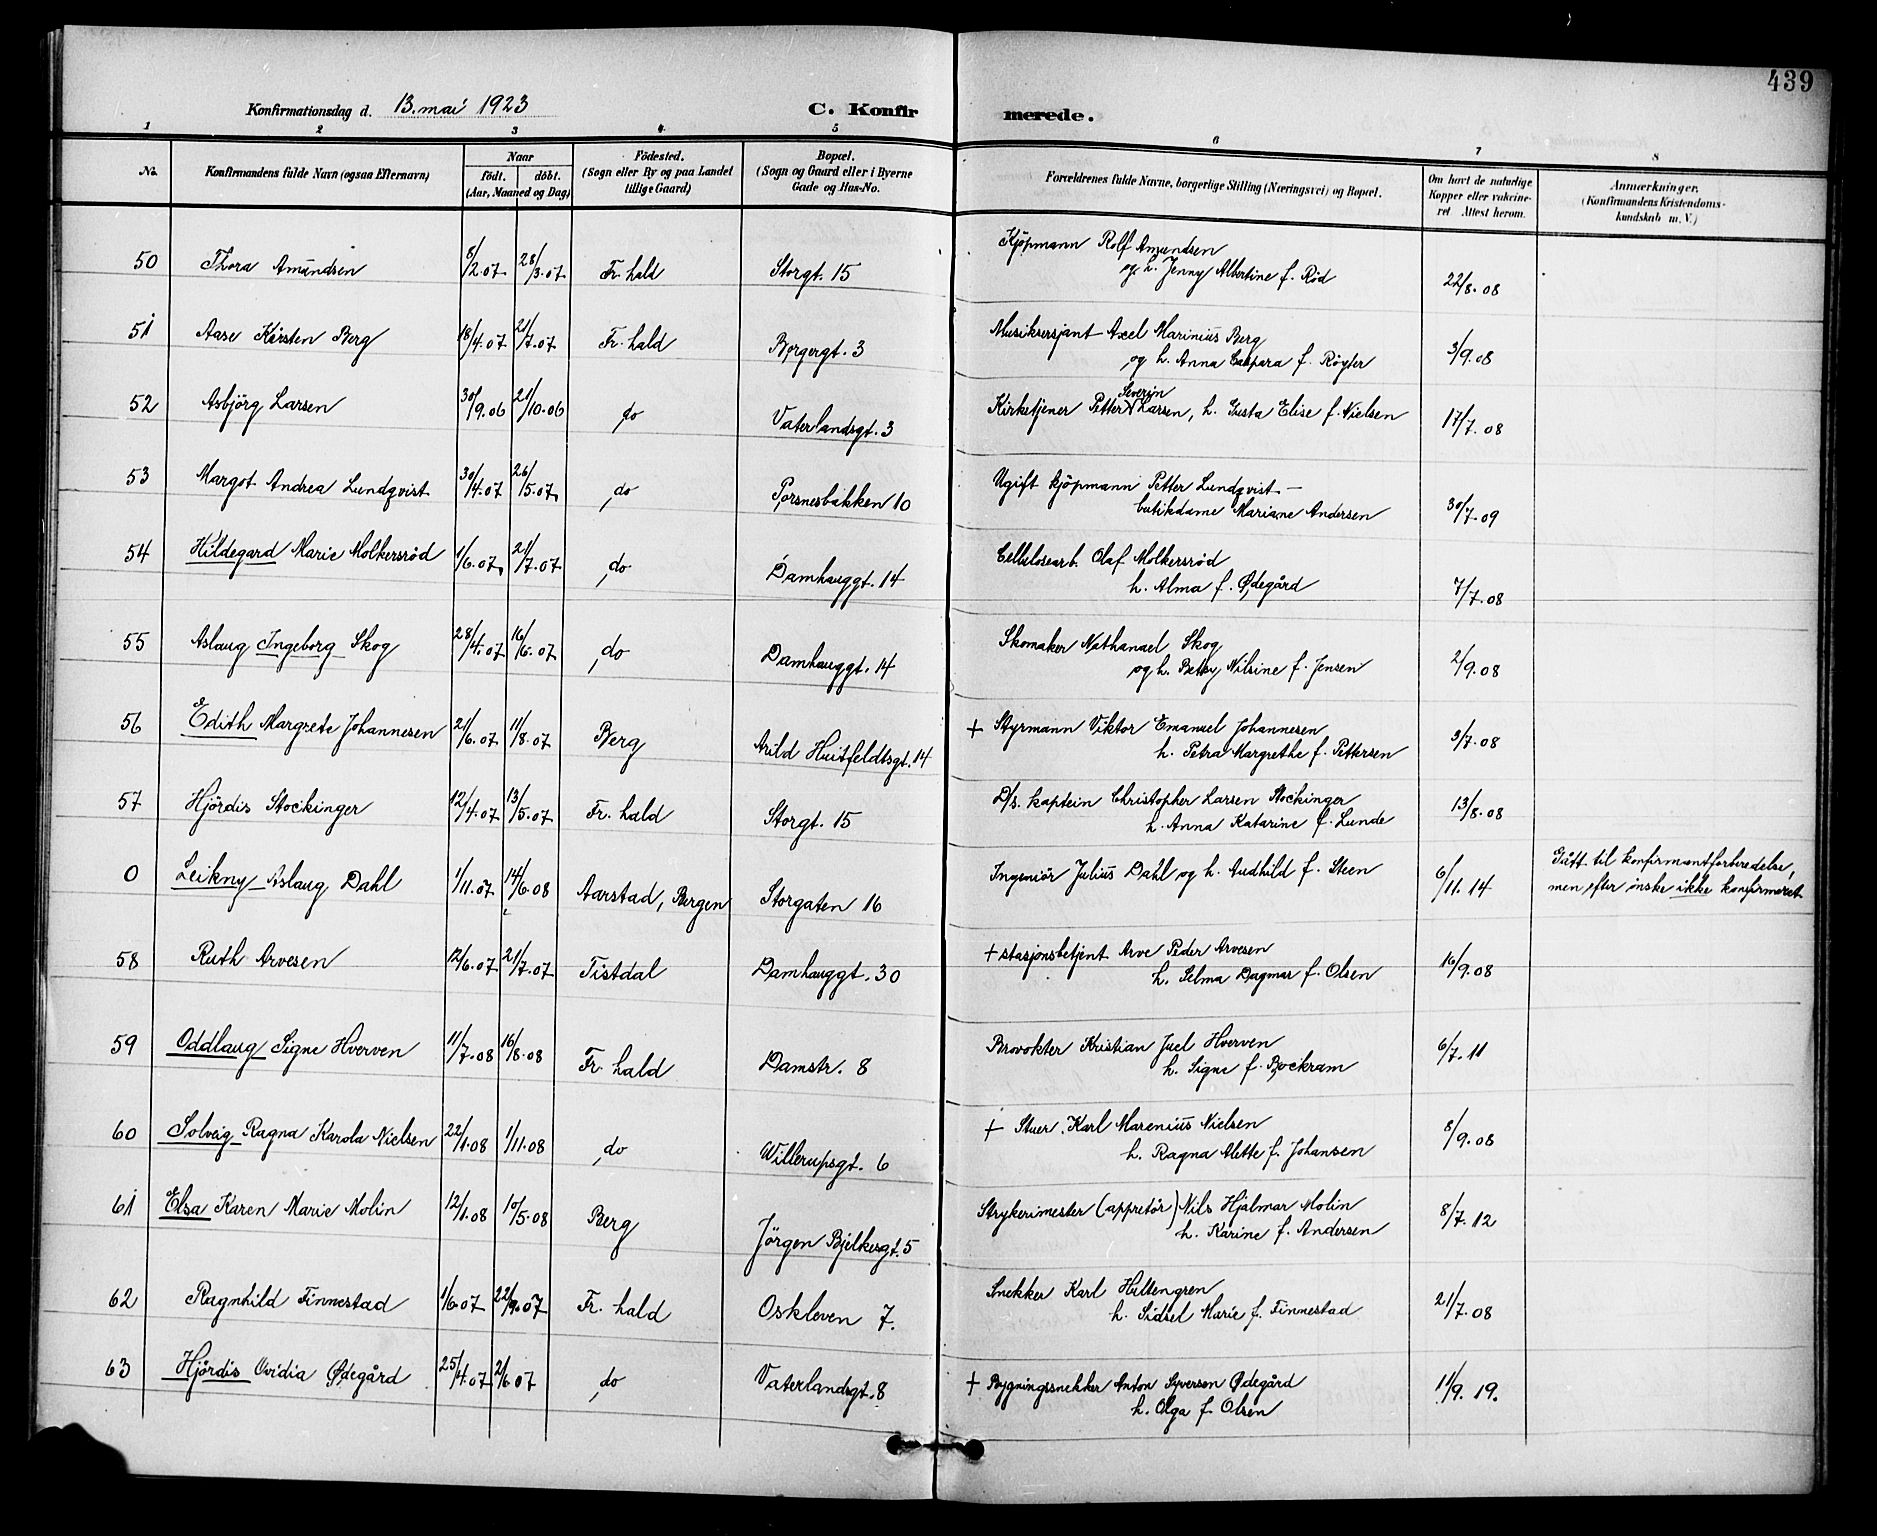 439
Konfirmationsdag d. 13. mai 1923 C. Konfirmerede.
1 2 3 4 5 6 7 8
No. Konfirmandens fulde Navn (ogsaa Efternavn) Naar födt. döbt. (Aar, Maaned og Dag) Födested. (Sogn eller By og paa Landet tillige Gaard) Bopæl. (Sogn og Gaard eller i Byerne Gade og Hus-No. Forældrenes fulde Navne, borgerlige Stilling (Næringsvei) og Bopæl. Om havt de naturlige Kopper eller vakcineret Attest herom. Anmærkninger. (Konfirmandens Kristendomskundskab m. V.)
50 Thora Amundsen 8/2.07 28/3.07 Fr. hald Storgt. 15 Kjöpmann Rolf Amundsen
og h. Jenny Albertine f. Rød 22/8.08
51 Aase Kirsten Berg 18/4.07 21/7.07 Fr. hald Borgergt. 3 Musiksersjant Axel Marinius Berg
og h. Anna Caspara f. Röyter 3/9.08
52 Asbjörg Larsen 30/9.06 21/10.06 do Vaterlandsgt. 3 Kirketjener Petter Severin Larsen, h. Gusta Elise f. Nielsen 17/7.08
53 Margot Andrea Lundqvist 30/4.07 26/5.07 do Torsnesbakken 10 Ugift kjöpmann Petter Lundqvist –
butikdame Mariane Andersen 30/7.09
54 Hildegard Marie Molkersröd 1/6.07 21/7.07 do Damhauggt. 14 Cellulosearb. Olaf Molkersröd
h. Alma f. Ødegård 7/7.08
55 Aslaug Ingeborg Skog 28/4.07 16/6.07 do Damhauggt. 14 Skomaker Nathanael Skog
og h. Betsy Nilsine f. Jensen 2/9.08
56 Edith Margrete Johannesen 21/6.07 11/8.07 Berg Arild Huitfeldtsgt. 14 + Styrmann Viktor Emanuel Johannesen
h. Petra Margrethe f. Pettersen 3/7.08
57 Hjördis Stockinger 12/4.07 13/5.07 Fr. hald Storgt. 15 D/s. kaptein Christopher Larsen Stockinger
h. Anna Katarine f. Lunde 13/8.08
0 Leikny Aslaug Dahl 1/11.07 14/6.08 Aarstad, Bergen Storgaten 16 Ingeniör Julius Dahl og h. Audhild f. Steen 6/11.14 Gått til konfirmantforberedelse,
men efter önske ikke konfirmeret
58 Ruth Arvesen 12/6.07 21/7.07 Tistdal Damhauggt. 30 + stasjonsbetjent Arve Peder Arvesen
h. Selma Dagmar f. Olsen 16/9.08
59 Oddlaug Signe Hverven 11/7.08 16/8.08 Fr. hald Damstr. 8 Brovokter Kristian Juel Hverven
h. Signe f. Bockram 6/7.11
60 Solveig Ragna Karola Nielsen 22/1.08 1/11.08 do Willerupsgt. 6 + Stuer. Karl Marenius Nielsen
h. Ragna Alette f. Johansen 8/9.08
61 Elsa Karen Marie Molin 12/1.08 10/5.08 Berg Jörgen Bjelkesgt. 5 Strykerimester (appretör) Nils Hjalmar Molin
h. Karine f. Andersen 8/7.12
62 Ragnhild Finnestad 1/6.07 22/9.07 Fr. hald Oskleven 7. Snekker Karl Hiltengren
h. Sidsel Marie f. Finnestad 21/7.08
63 Hjördis Ovidia Ødegård 25/4.07 2/6.07 do Vaterlandsgt. 8 + Bygningssnekker Anton Syversen Ødegård
h. Olga f. Olsen 11/9.19.